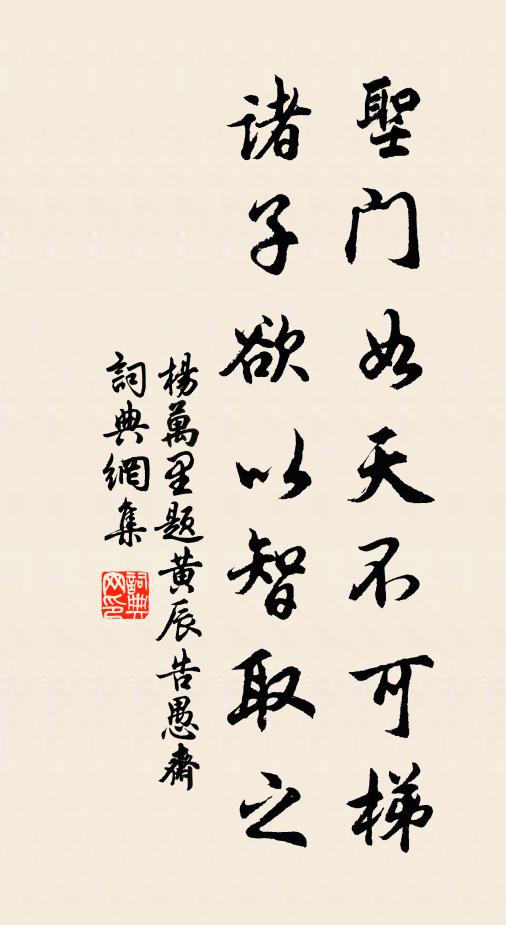 聖门如天不可梯
诸子欲以智取之
楊萬里题黄辰告愚齋
詞典網集
詞典网印